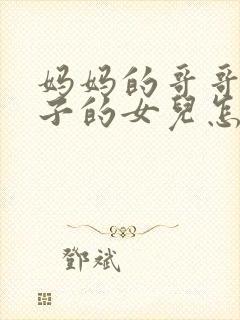 妈妈的哥哥
子的女兒怎
鄧斌